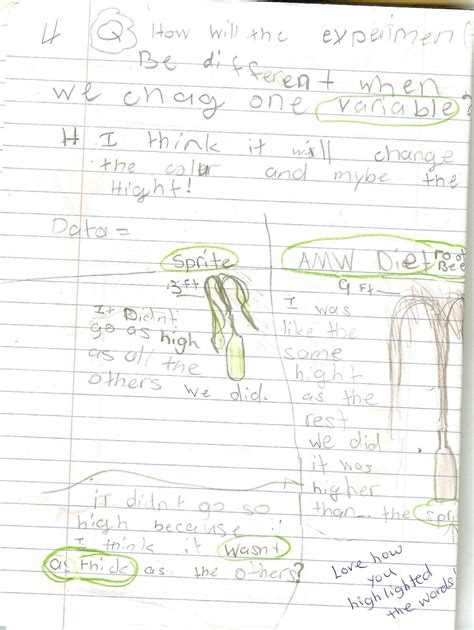 4 Q How will the experiment
Be different when
we chag one variable?
H I think it will change
the color and mybe the
Hight!
Data =
Sprite
3 ft
It Didnt
go as high
as all the
others we did.
AMW Diet Root
Bee
9 Ft
I was
like the
same
hight
as the
rest
we did
it was
higher
than the Spri
it didnt go so
high because
I think it wasnt
as thick as the others?
Love how
you
highlighted
the words!